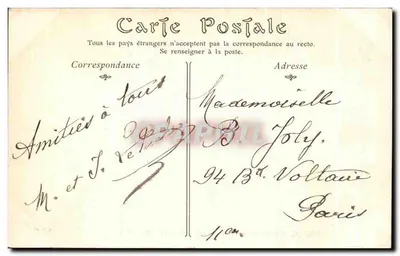 Carte Postale
Tous les pays étrangers n'acceptent pas la correspondance au recto.
Se renseigner à la poste.
Correspondance
Adresse
Amitiés à tous
M. et J.
Mademoiselle
B. Joly.
94 Bd Voltaire
Paris
11em